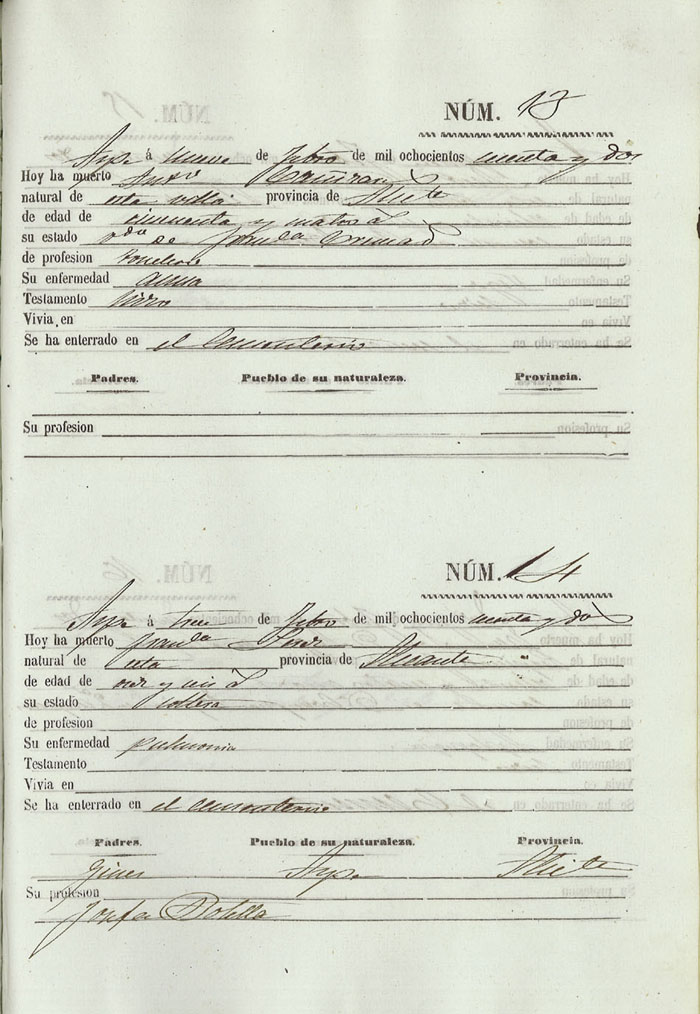 NÚM. 13
Aspe á nueve de Febro de mil ochocientos sesenta y dos
Hoy ha muerto
natural de esta villa provincia de Alicte
de edad de cincuenta y cuatro a
su estado vda de
de profesion
Su enfermedad asma
Testamento hizo
Vivia en
Se ha enterrado en el Cementerio
Padres. Pueblo de su naturaleza. Provincia.
Su profesion
NÚM. 14
Aspe á de Febro de mil ochocientos sesenta y dos
Hoy ha muerto Franca
natural de esta provincia de Alicante
de edad de y seis a
su estado soltera
de profesion
Su enfermedad pulmonia
Testamento
Vivia en
Se ha enterrado en el Cementerio
Padres. Pueblo de su naturaleza. Provincia.
Gines Aspe Alicte
Su profesion
Josefa Botella